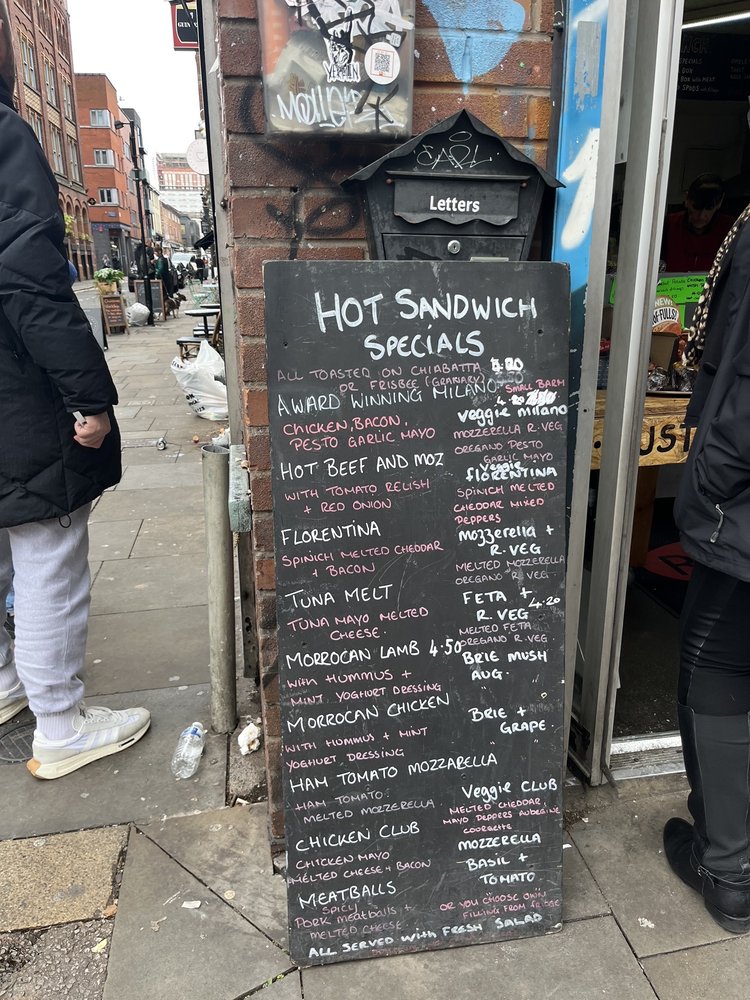 EARL
Letters
HOT SANDWICH
SPECIALS
ALL TOASTED ON CHIABATTA
OR FRISBEE (GRANARY)
SMALL BARM
AWARD WINNING MILANO
CHICKEN, BACON,
PESTO GARLIC MAYO
HOT BEEF AND MOZ
WITH TOMATO RELISH
+ RED ONION
FLORENTINA
SPINICH MELTED CHEDDAR
+ BACON
TUNA MELT
TUNA MAYO MELTED
CHEESE.
MORROCAN LAMB 4.50
WITH HUMMUS +
MINT YOGHURT DRESSING
MORROCAN CHICKEN
WITH HUMMUS + MINT
YOGHURT DRESSING
HAM TOMATO MOZZARELLA
HAM TOMATO.
MELTED MOZZERELLA
CHICKEN CLUB
CHICKEN MAYO
MELTED CHEESE + BACON
MEATBALLS
SPICY
PORK MEATBALLS +
MELTED CHEESE
4.20
veggie milano
MOZZERELLA R.VEG
OREGANO PESTO
GARLIC MAYO
veggie
FLORENTINA
SPINICH MELTED
CHEDDAR MIXED
PEPPERS
MOZZERELLA +
R.VEG
MELTED MOZZERELLA
OREGANO R.VEG
FETA +
R.VEG 4.20
MELTED FETA
OREGANO R.VEG
BRIE MUSH
AUG.
BRIE +
GRAPE
Veggie CLUB
MELTED CHEDDAR,
MAYO PEPPERS AUBEGINE
COURGETTE
MOZZERELLA
BASIL +
TOMATO
OR YOU CHOOSE OWN
FILLING FROM FRIDGE
ALL SERVED WITH FRESH SALAD
NEW!
UST